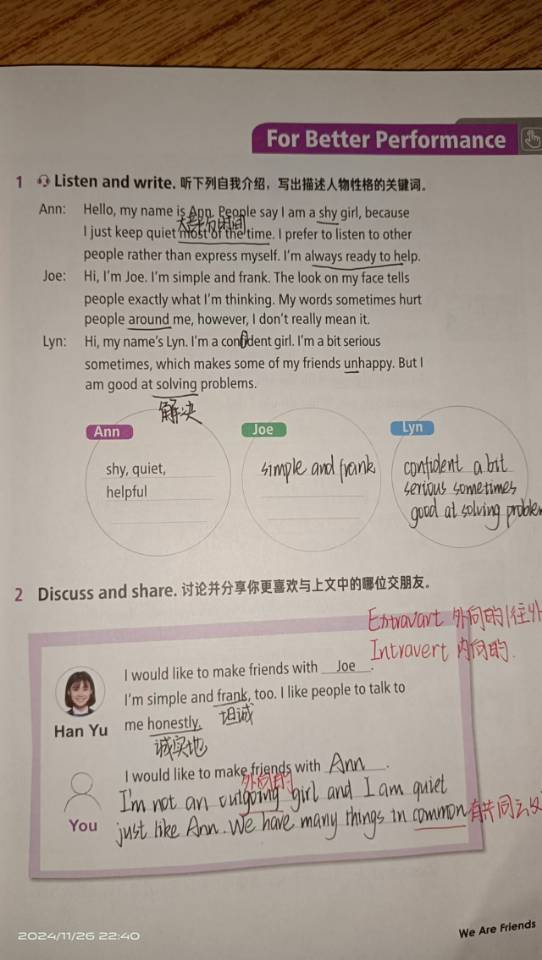 For Better Performance
1 Listen and write. 听下列自我介绍，写出描述人物性格的关键词。
Ann: Hello, my name is Ann. People say I am a shy girl, because
大部分时间
I just keep quiet most of the time. I prefer to listen to other
people rather than express myself. I'm always ready to help.
Joe: Hi, I'm Joe. I'm simple and frank. The look on my face tells
people exactly what I'm thinking. My words sometimes hurt
people around me, however, I don't really mean it.
Lyn: Hi, my name's Lyn. I'm a confident girl. I'm a bit serious
sometimes, which makes some of my friends unhappy. But I
am good at solving problems.
解决
Ann Joe Lyn
shy, quiet, simple and frank confident a bit
helpful serious sometimes
good at solving problem
2 Discuss and share. 讨论并分享你更喜欢与上文中的哪位交朋友。
Extravart 外向的 往外
Intravert 内向的.
I would like to make friends with Joe.
I'm simple and frank, too. I like people to talk to
坦诚
me honestly.
Han Yu
诚实地
I would like to make friends with Ann.
外向的
I'm not an outgoing girl and I am quiet
You
just like Ann. We have many things in common 有共同之处
We Are Friends
2024/11/26 22:40